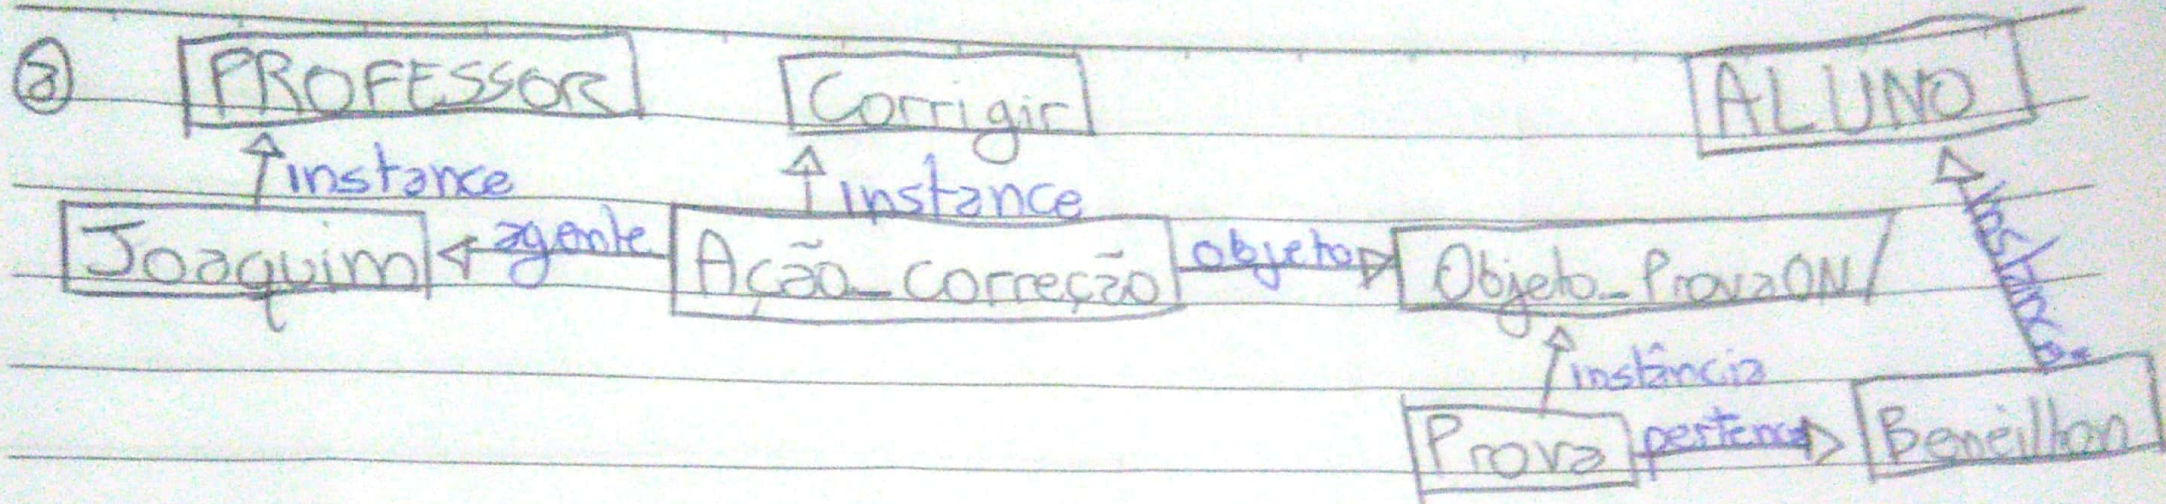 a PROFESSOR Corrigir ALUNO
instance instance instância
Joaquim agente Ação_correção objeto Objeto_Prova
instância
Prova pertence